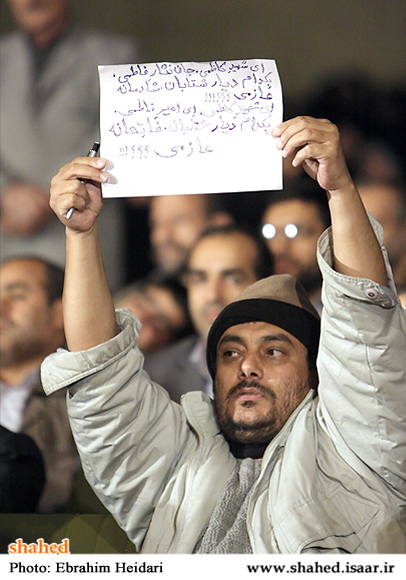 ای شهید کاظمی، جان نثار فاطمی.
بکدام دیار شتابان، شادمانه
عازمی ؟؟؟!!!
ای شهید کاظمی، ای امیر فاطمی.
بکدام دیار، فاتحانه
عازمی ؟؟؟!!!
shahed
Photo: Ebrahim Heidari
www.shahed.isaar.ir